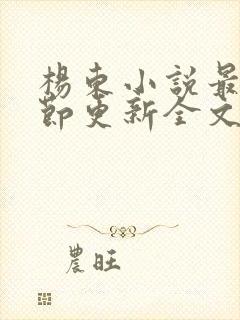 楊東小說最
節更新全文
農旺